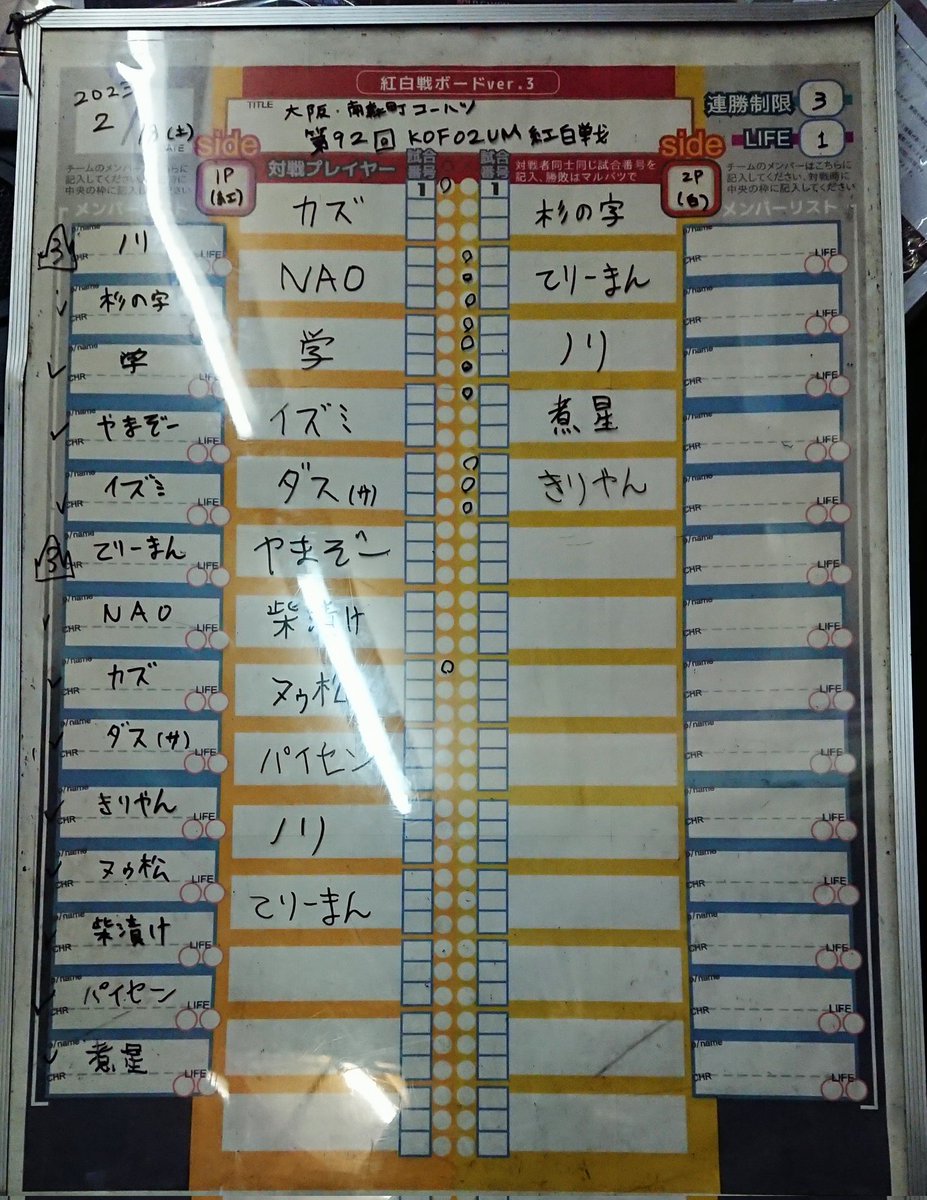 紅白戦ボードver.3
2023
2/18(土)
TITLE
大阪・南森町コーハツ
第92回 KOF02UM 紅白戦
連勝制限 3
LIFE 1
side
1P
(紅)
side
2P
(白)
チームのメンバーはこちらに
記入してください。対戦時に
中央の枠に記入してください
メンバーリスト
対戦プレイヤー
試合番号
1
試合番号
1
対戦者同士同じ試合番号を
記入、勝敗はマルバツで
チームのメンバーはこちらに
記入してください。対戦時に
中央の枠に記入してください
メンバーリスト
3
ノリ
杉の字
学
やまぞー
イズミ
3
てりーまん
NAO
カズ
ダス(サ)
きりやん
ヌゥ松
柴漬け
パイセン
煮星
カズ
杉の字
NAO
てりーまん
学
ノリ
イズミ
煮星
ダス(サ)
きりやん
やまぞー
柴漬け
ヌゥ松
パイセン
ノリ
てりーまん